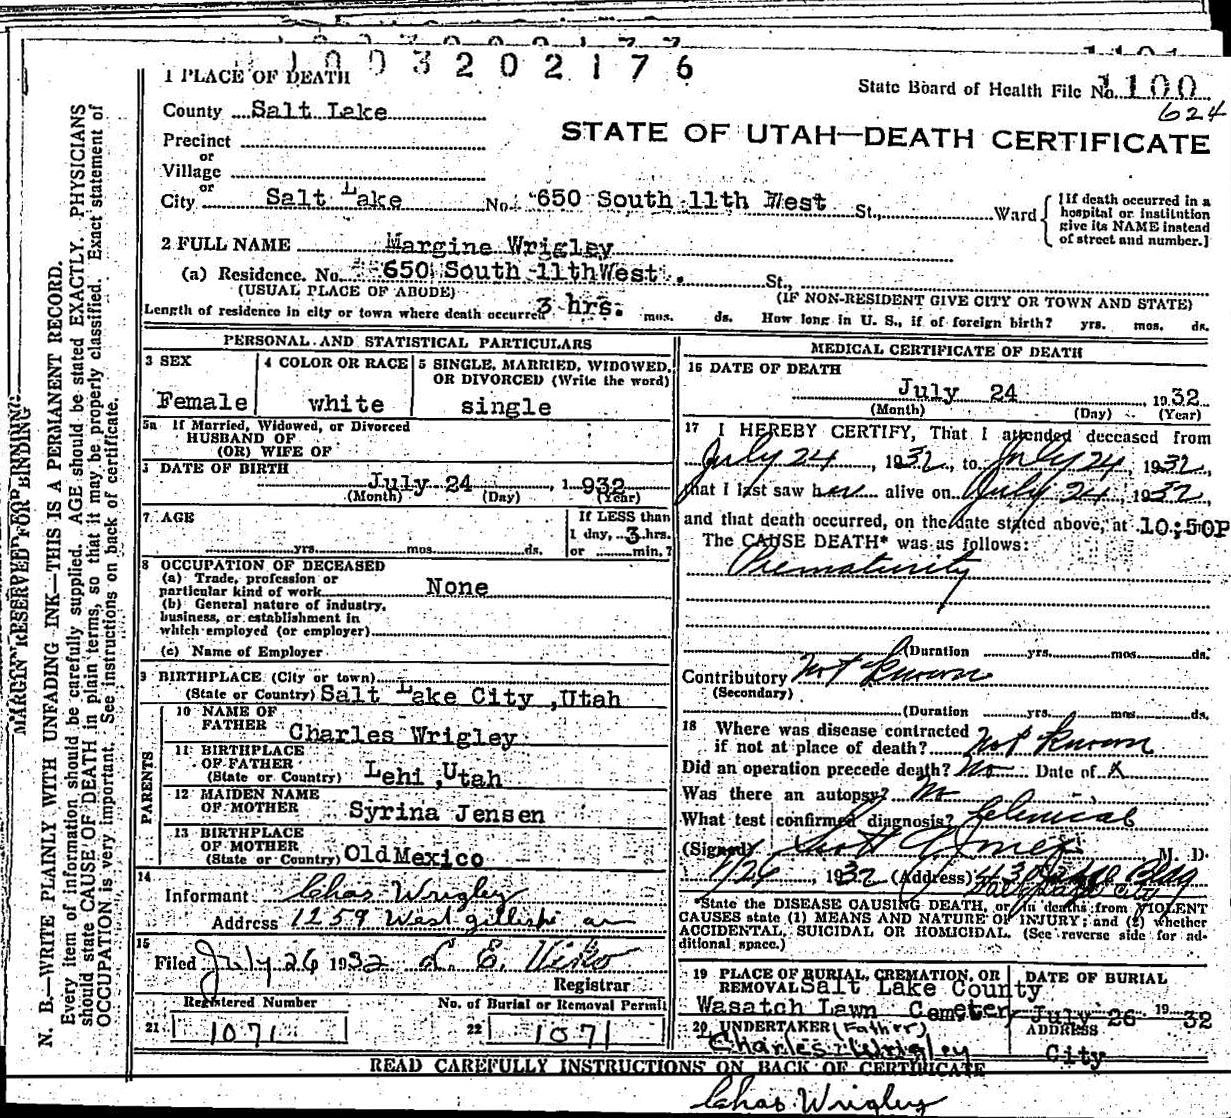 1003202176
State Board of Health File No. 1100
624
1 PLACE OF DEATH
County Salt Lake
Precinct
or
Village
or
City Salt Lake No. 650 South 11th West St., Ward
[If death occurred in a hospital or institution give its NAME instead of street and number.]
STATE OF UTAH—DEATH CERTIFICATE
2 FULL NAME Margine Wrigley
(a) Residence. No. 650 South 11thWest. St.,
(USUAL PLACE OF ABODE) (IF NON-RESIDENT GIVE CITY OR TOWN AND STATE)
Length of residence in city or town where death occurred 3 hrs. mos. ds. How long in U. S., if of foreign birth? yrs. mos. ds.
PERSONAL AND STATISTICAL PARTICULARS
3 SEX
Female
4 COLOR OR RACE
white
5 SINGLE, MARRIED, WIDOWED, OR DIVORCED (Write the word)
single
5a If Married, Widowed, or Divorced
HUSBAND OF
(OR) WIFE OF
DATE OF BIRTH
July 24, 1932
(Month) (Day) (Year)
7 AGE
yrs. mos. ds.
If LESS than
1 day, 3 hrs.
or min.?
8 OCCUPATION OF DECEASED
(a) Trade, profession or
particular kind of work None
(b) General nature of industry,
business, or establishment in
which employed (or employer)
(c) Name of Employer
9 BIRTHPLACE (City or town)
(State or Country) Salt Lake City ,Utah
PARENTS
10 NAME OF
FATHER Charles Wrigley
11 BIRTHPLACE
OF FATHER
(State or Country) Lehi ,Utah
12 MAIDEN NAME
OF MOTHER Syrina Jensen
13 BIRTHPLACE
OF MOTHER
(State or Country) Old Mexico
14
Informant Chas Wrigley
Address 1259 West
15
Filed July 26 1932 L. E. Viko
Registrar
Registered Number
21 1071
No. of Burial or Removal Permit
22 1071
MEDICAL CERTIFICATE OF DEATH
16 DATE OF DEATH
July 24, 1932
(Month) (Day) (Year)
17 I HEREBY CERTIFY, That I attended deceased from
July 24, 1932, to July 24, 1932,
that I last saw her alive on July 24, 1932
and that death occurred, on the date stated above, at 10:50P
The CAUSE DEATH* was as follows:
Prematurity
(Duration yrs. mos. ds.
Contributory Not known
(Secondary)
(Duration yrs. mos. ds.
18 Where was disease contracted
if not at place of death? Not known
Did an operation precede death? No Date of X
Was there an autopsy? No
What test confirmed diagnosis? Clinical
(Signed) M. D.
7/26, 1932 (Address) Bldg
*State the DISEASE CAUSING DEATH, or, in deaths from VIOLENT
CAUSES state (1) MEANS AND NATURE OF INJURY; and (2) whether
ACCIDENTAL, SUICIDAL OR HOMICIDAL. (See reverse side for ad-
ditional space.)
19 PLACE OF BURIAL, CREMATION, OR
REMOVAL Salt Lake County
Wasatch Lawn Cemetery
DATE OF BURIAL
July 26 19 32
20 UNDERTAKER (Father)
Charles Wrigley
ADDRESS
City
READ CAREFULLY INSTRUCTIONS ON BACK OF CERTIFICATE
Chas. Wrigley
MARGIN RESERVED FOR BINDING
N. B.—WRITE PLAINLY WITH UNFADING INK—THIS IS A PERMANENT RECORD.
Every item of information should be carefully supplied. AGE should be stated EXACTLY. PHYSICIANS
should state CAUSE OF DEATH in plain terms, so that it may be properly classified. Exact statement of
OCCUPATION is very important. See instructions on back of certificate.